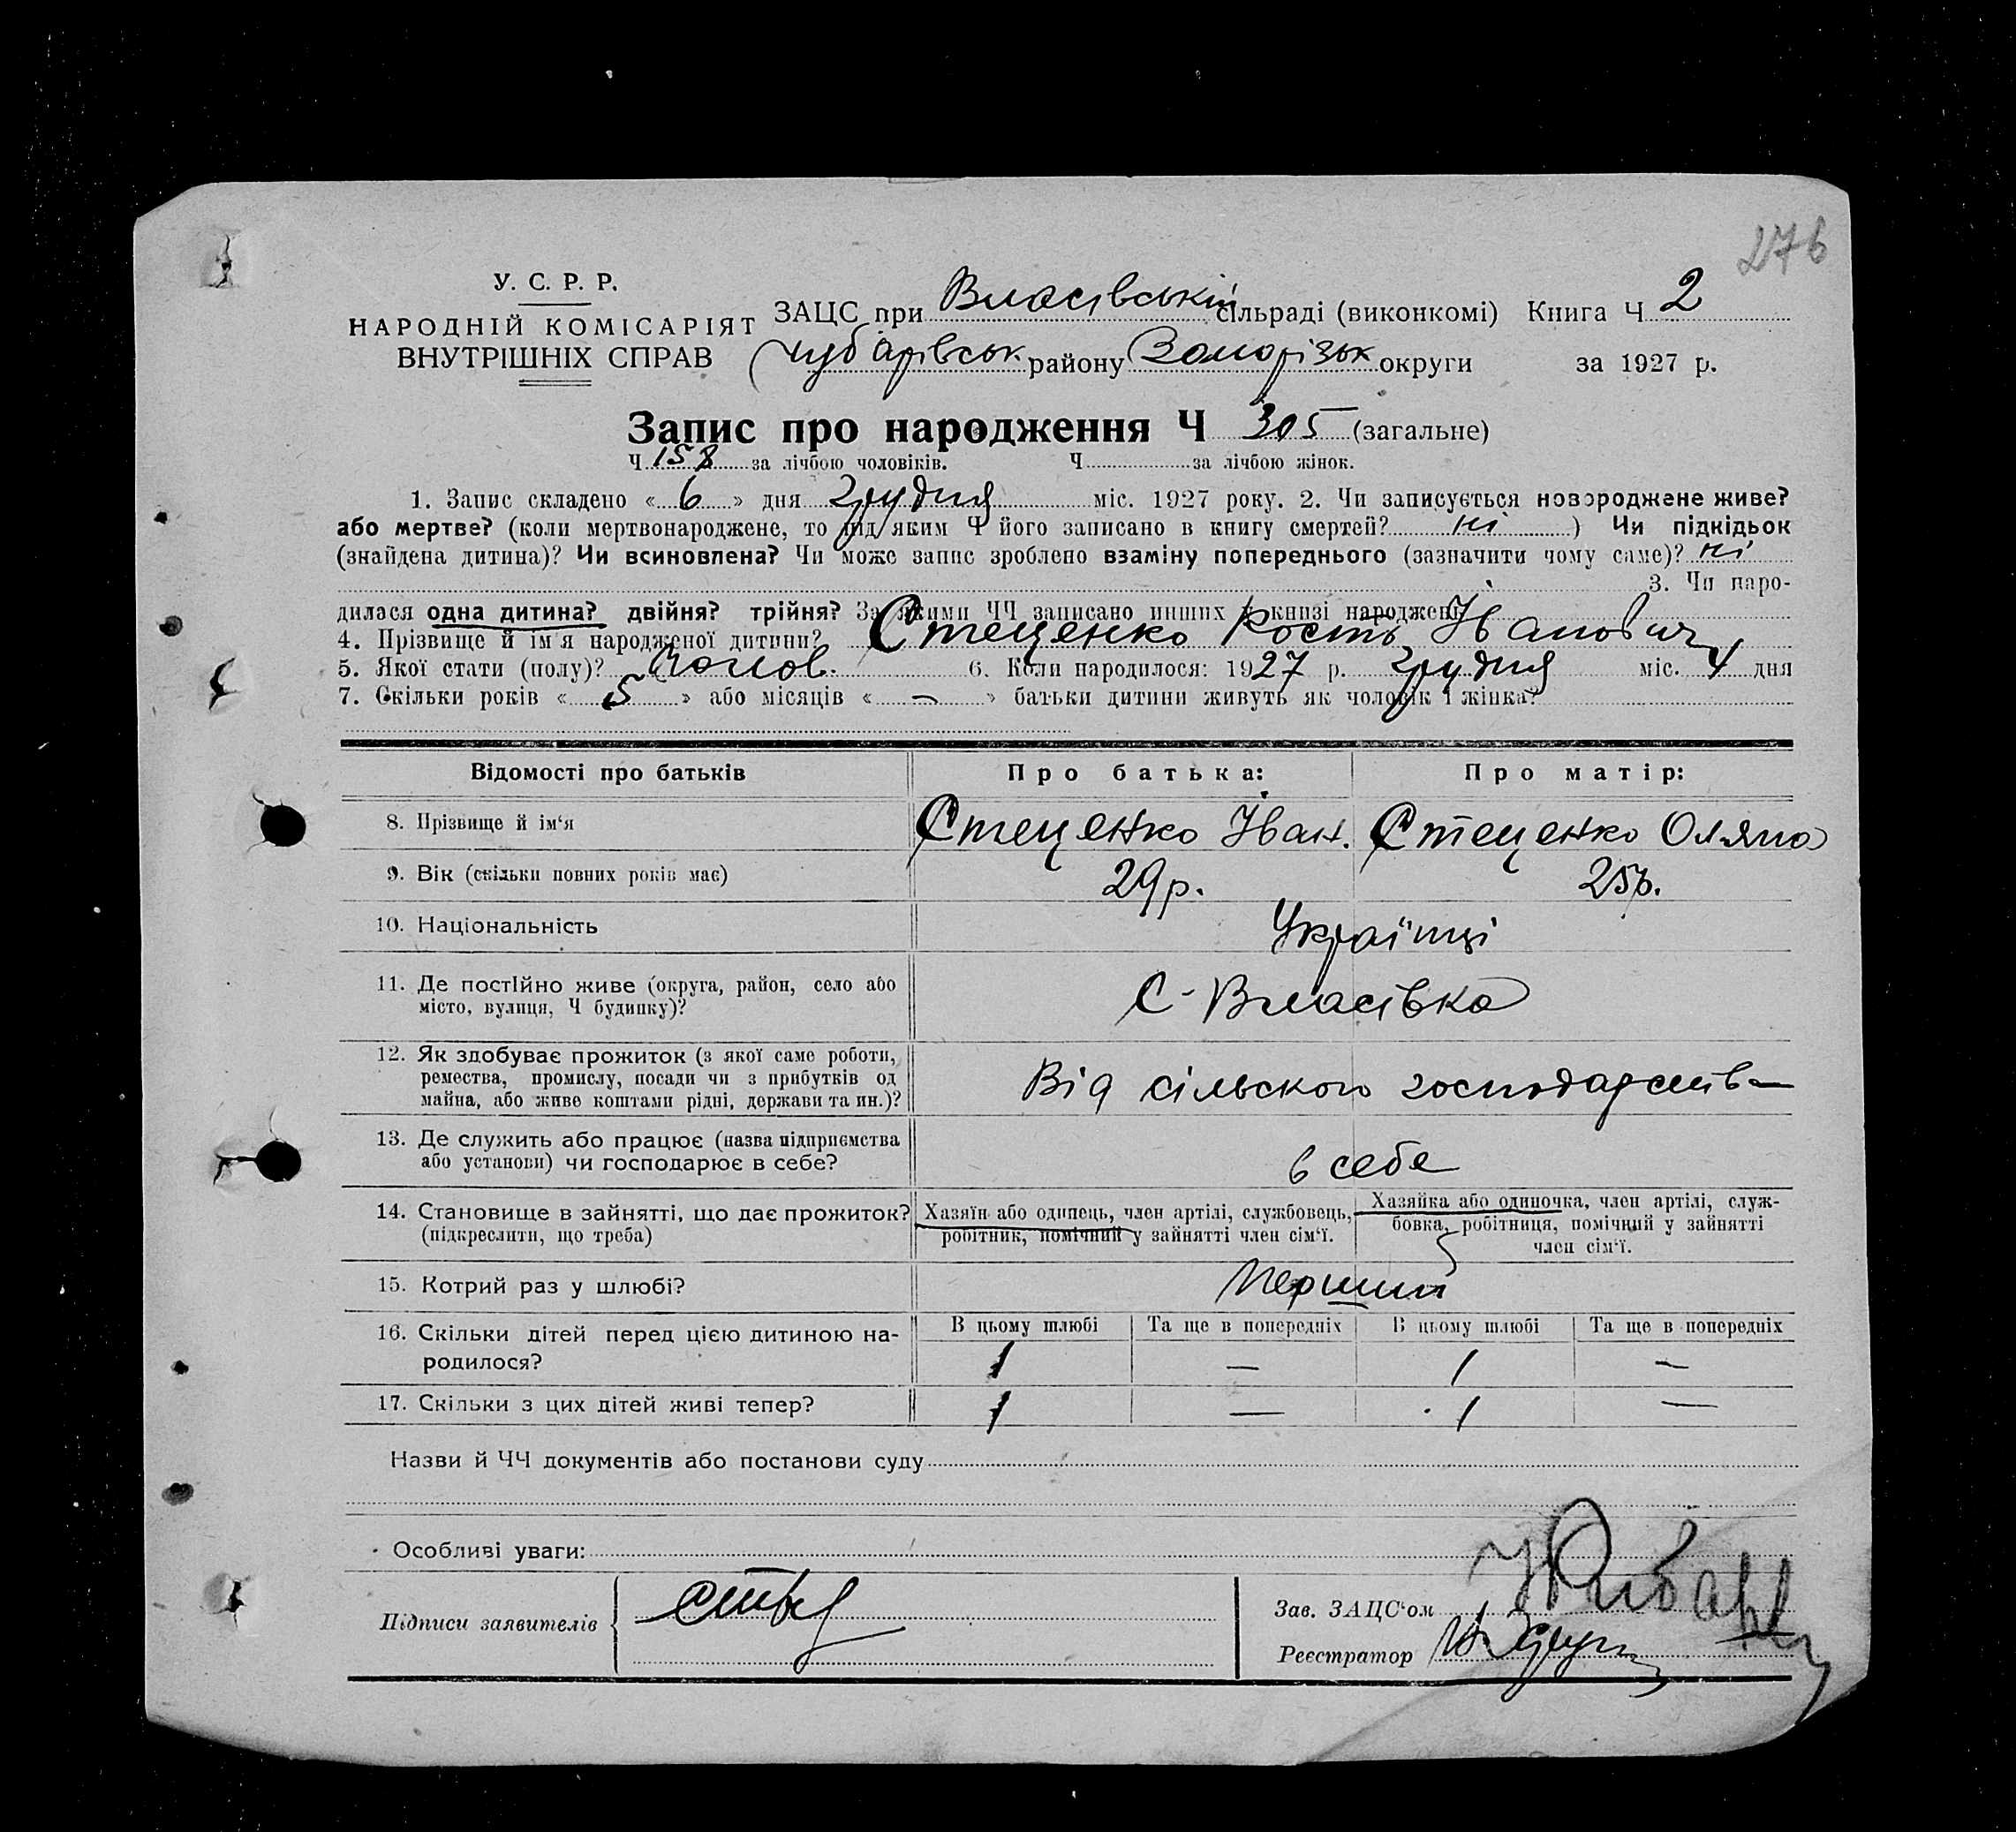 276
У. С. Р. Р.
НАРОДНІЙ КОМІСАРІЯТ
ВНУТРІШНІХ СПРАВ
ЗАЦС при Власівській сільраді (виконкомі) Книга Ч 2
Чубарівськ району Запорізьк округи за 1927 р.
Запис про народження Ч 305 (загальне)
Ч 158 за лічбою чоловіків. Ч за лічбою жінок.
1. Запис складено « 6 » дня грудня міс. 1927 року. 2. Чи записується новороджене живе?
або мертве? (коли мертвонароджене, то під яким Ч його записано в книгу смертей? ні ) Чи підкідьок
(знайдена дитина)? Чи всиновлена? Чи може запис зроблено взаміну попереднього (зазначити чому саме)? ні
3. Чи наро-
дилася одна дитина? двійня? трійня? За якими ЧЧ записано инших в книзі народжень
4. Прізвище й ім'я народженої дитини? Стеценко Кость Іванович
5. Якої стати (полу)? Чолов. 6. Коли народилося: 1927 р. грудня міс. 4 дня
7. Скільки років « 5 » або місяців « — » батьки дитини живуть як чоловік і жінка?
Відомості про батьків Про батька: Про матір:
8. Прізвище й ім'я Стеценко Іван. Стеценко Оляна
9. Вік (скільки повних років має) 29р. 25р.
10. Національність Українці
11. Де постійно живе (округа, район, село або
місто, вулиця, Ч будинку)? С-Власівка
12. Як здобуває прожиток (з якої саме роботи,
ремества, промислу, посади чи з прибутків од
майна, або живе коштами рідні, держави та ин.)? Від сільского господарства
13. Де служить або працює (назва підприємства
або установи) чи господарює в себе? в себе
14. Становище в зайнятті, що дає прожиток?
(підкреслити, що треба)
Хазяїн або одинець, член артілі, службовець,
робітник, помічний у зайнятті член сім'ї.
Хазяйка або одиночка, член артілі, служ-
бовка, робітниця, помічний у зайнятті
член сім'ї.
15. Котрий раз у шлюбі? Перший
16. Скільки дітей перед цією дитиною на-
родилося?
В цьому шлюбі Та ще в попередніх В цьому шлюбі Та ще в попередніх
1 — 1 —
17. Скільки з цих дітей живі тепер? 1 — 1 —
Назви й ЧЧ документів або постанови суду
Особливі уваги:
Підписи заявителів
Зав. ЗАЦС'ом
Реєстратор